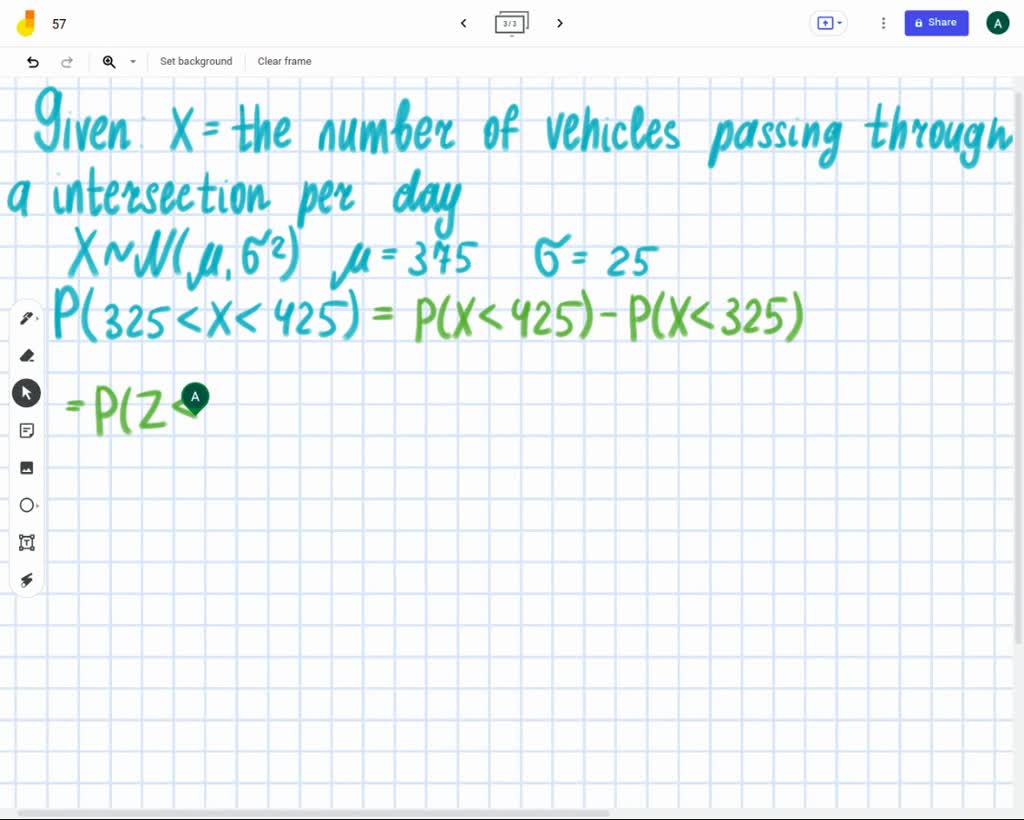 57
3/3
Share
A
Set background
Clear frame
Given: X = the number of vehicles passing through
a intersection per day
X ~ N(μ, σ²) μ = 375 σ = 25
P(325 < X < 425) = P(X < 425) - P(X < 325)
= P(Z <
A